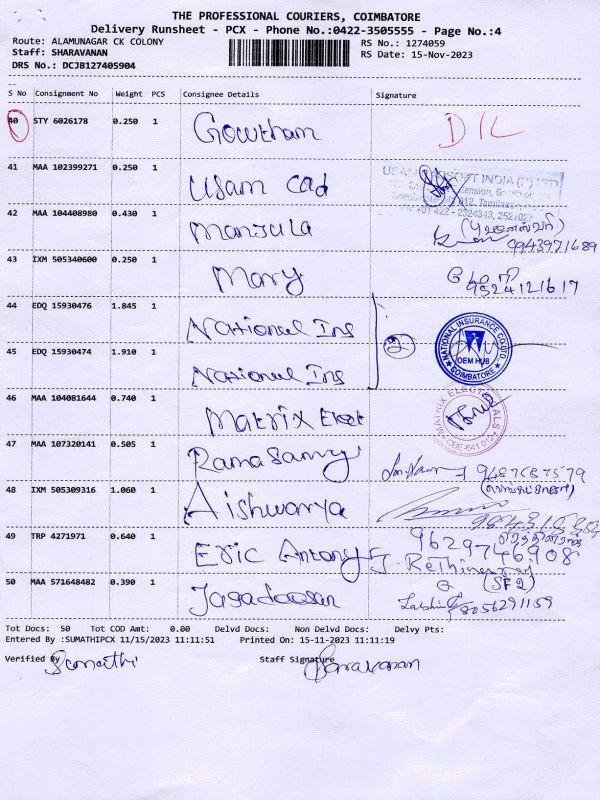 THE PROFESSIONAL COURIERS, COIMBATORE
Delivery Runsheet - PCX - Phone No.:0422-3505555 - Page No.:4
Route: ALAMUNAGAR CK COLONY RS No.: 1274059
Staff: SHARAVANAN RS Date: 15-Nov-2023
DRS No.: DCJB127405904
S No Consignment No Weight PCS Consignee Details Signature
40 STY 6026178 0.250 1 Gowtham DIL
41 MAA 102399271 0.250 1 Usam Cad
42 MAA 104408980 0.430 1 Manjula 9943971689
43 IXM 505340600 0.250 1 Mary 9524121617
44 EDQ 15930476 1.845 1 National Ins
45 EDQ 15930474 1.910 1 National Ins
2
NATIONAL INSURANCE CO. LTD.
OEM HUB
COIMBATORE
46 MAA 104081644 0.740 1 Matrix Elect
47 MAA 107320141 0.505 1 Ramasamy 9487687579
48 IXM 505309316 1.060 1 Aishwarya
49 TRP 4271971 0.640 1 Eric Antony 9629746908
(SF2)
50 MAA 571648482 0.390 1 Jagadeesan 8056291159
Tot Docs: 50 Tot COD Amt: 0.00 Delvd Docs: Non Delvd Docs: Delvy Pts:
Entered By :SUMATHIPCX 11/15/2023 11:11:51 Printed On: 15-11-2023 11:11:19
Verified By Sumathi Staff Signature Saravanan